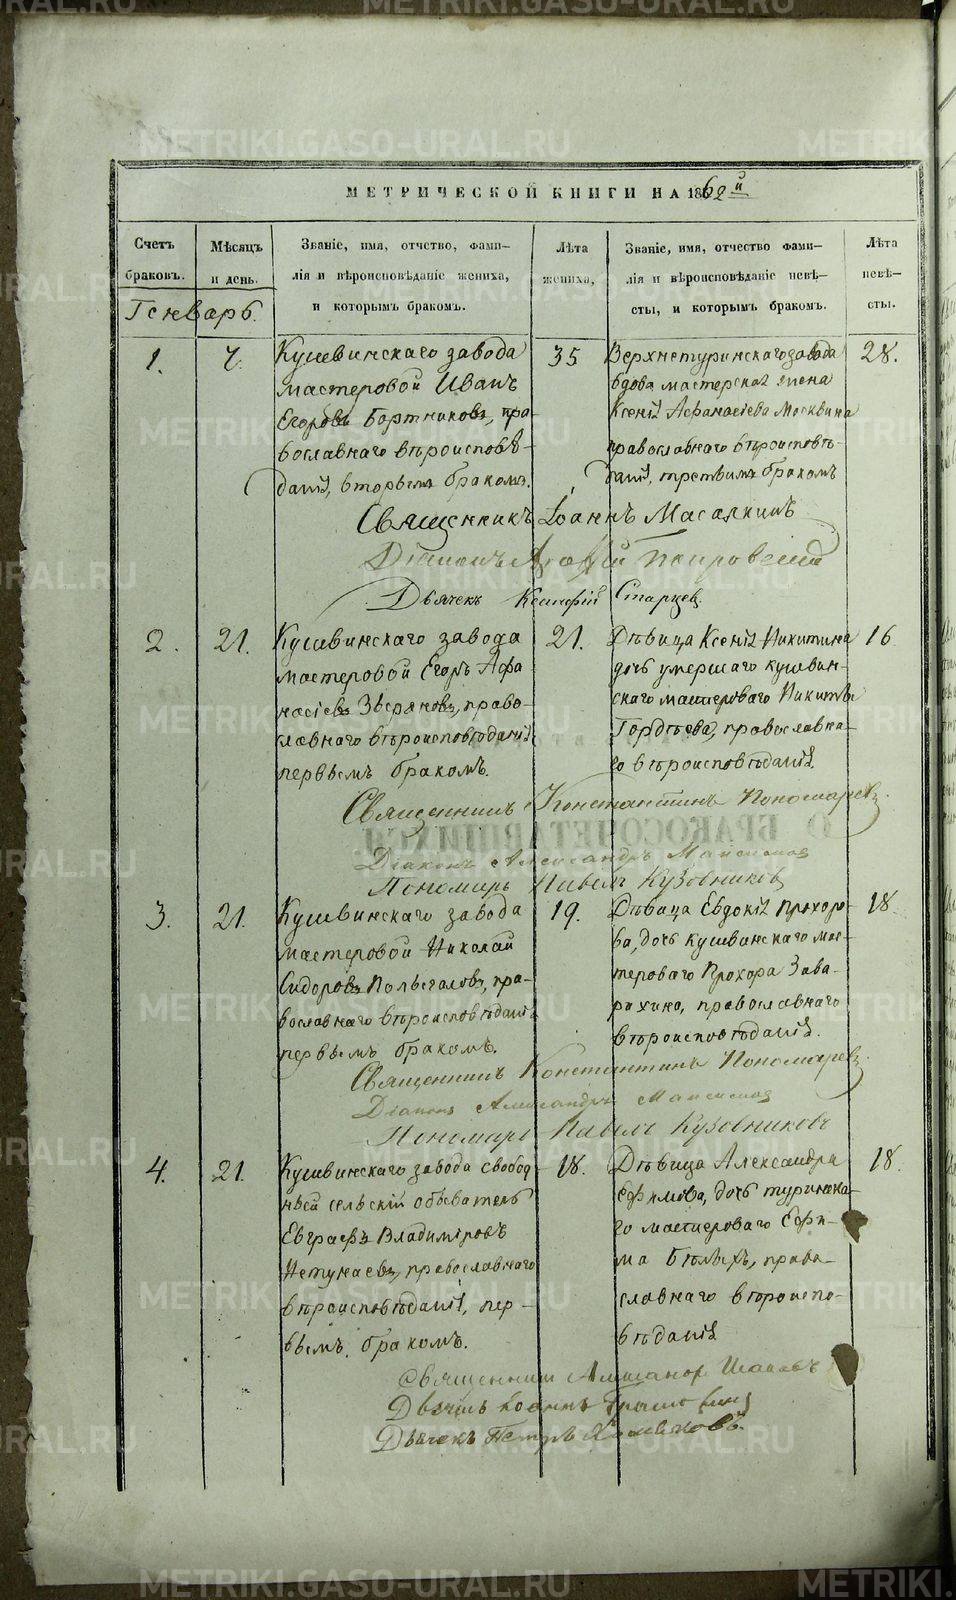 МЕТРИЧЕСКОЙ КНИГИ НА 1862й
Счетъ
браковъ.
Мѣсяцъ
и день.
Званіе, имя, отчство, фами-
лія и вѣроисповѣданіе жениха,
и которымъ бракомъ.
Лѣта
жениха,
Званіе, имя, отчество фами-
лія и вѣроисповѣданіе невѣ-
сты, и которымъ бракомъ.
Лѣта
невѣ-
сты.
Генварь.
1.
7.
Кушвинскаго завода
мастеровой Иванъ
Егоровъ Бортниковъ, пра-
вославнаго вѣроисповѣ-
данія, вторымъ бракомъ.
35
Верхнетуринскаго завода
вдова мастерская жена
Ксенія Афанасіева Москвина
православнаго вѣроисповѣ-
данія, третьимъ бракомъ
28.
Священникъ Іоаннъ Масалкинъ
Діаконъ
Дьячек Ксанфій Старцев.
2.
21.
Кушвинскаго завода
мастеровой Егоръ Афа
насіевъ Звѣряновъ, право-
славнаго вѣроисповѣданія
первымъ бракомъ.
21.
Дѣвица Ксенія Никитина
дочь умершаго кушвин-
скаго мастероваго Никиты
Гордѣева, православна-
го вѣроисповѣданія
16
Священникъ Константинъ Пономаревъ.
Діаконъ Александръ
Пономарь Павелъ Кузовников
3.
21.
Кушвинскаго завода
мастеровой Николай
Сидоровъ Полыгаловъ, пра-
вославнаго вѣроисповѣданія
первымъ бракомъ.
19.
Дѣвица Евдокія Прохоро-
ва, дочь кушвинскаго мас-
тероваго Прохора Зава-
рихина, православнаго
вѣроисповѣданія.
18.
Священникъ Константинъ Пономаревъ.
Діаконъ Александръ
Пономарь Павелъ Кузовниковъ
4.
21.
Кушвинскаго завода свобод
ный сельскій обыватель
Евграфъ Владиміровъ
Нетунаевъ, православнаго
вѣроисповѣданія, пер-
вымъ бракомъ.
18.
Дѣвица Александра
Ефимова, дочь туринска-
го мастероваго Ефи-
ма Бѣлыхъ, право-
славнаго вѣроиспо-
вѣданія
18.
Священник
Дьячекъ Іоаннъ
Дьячекъ Петръ Хомяковъ.